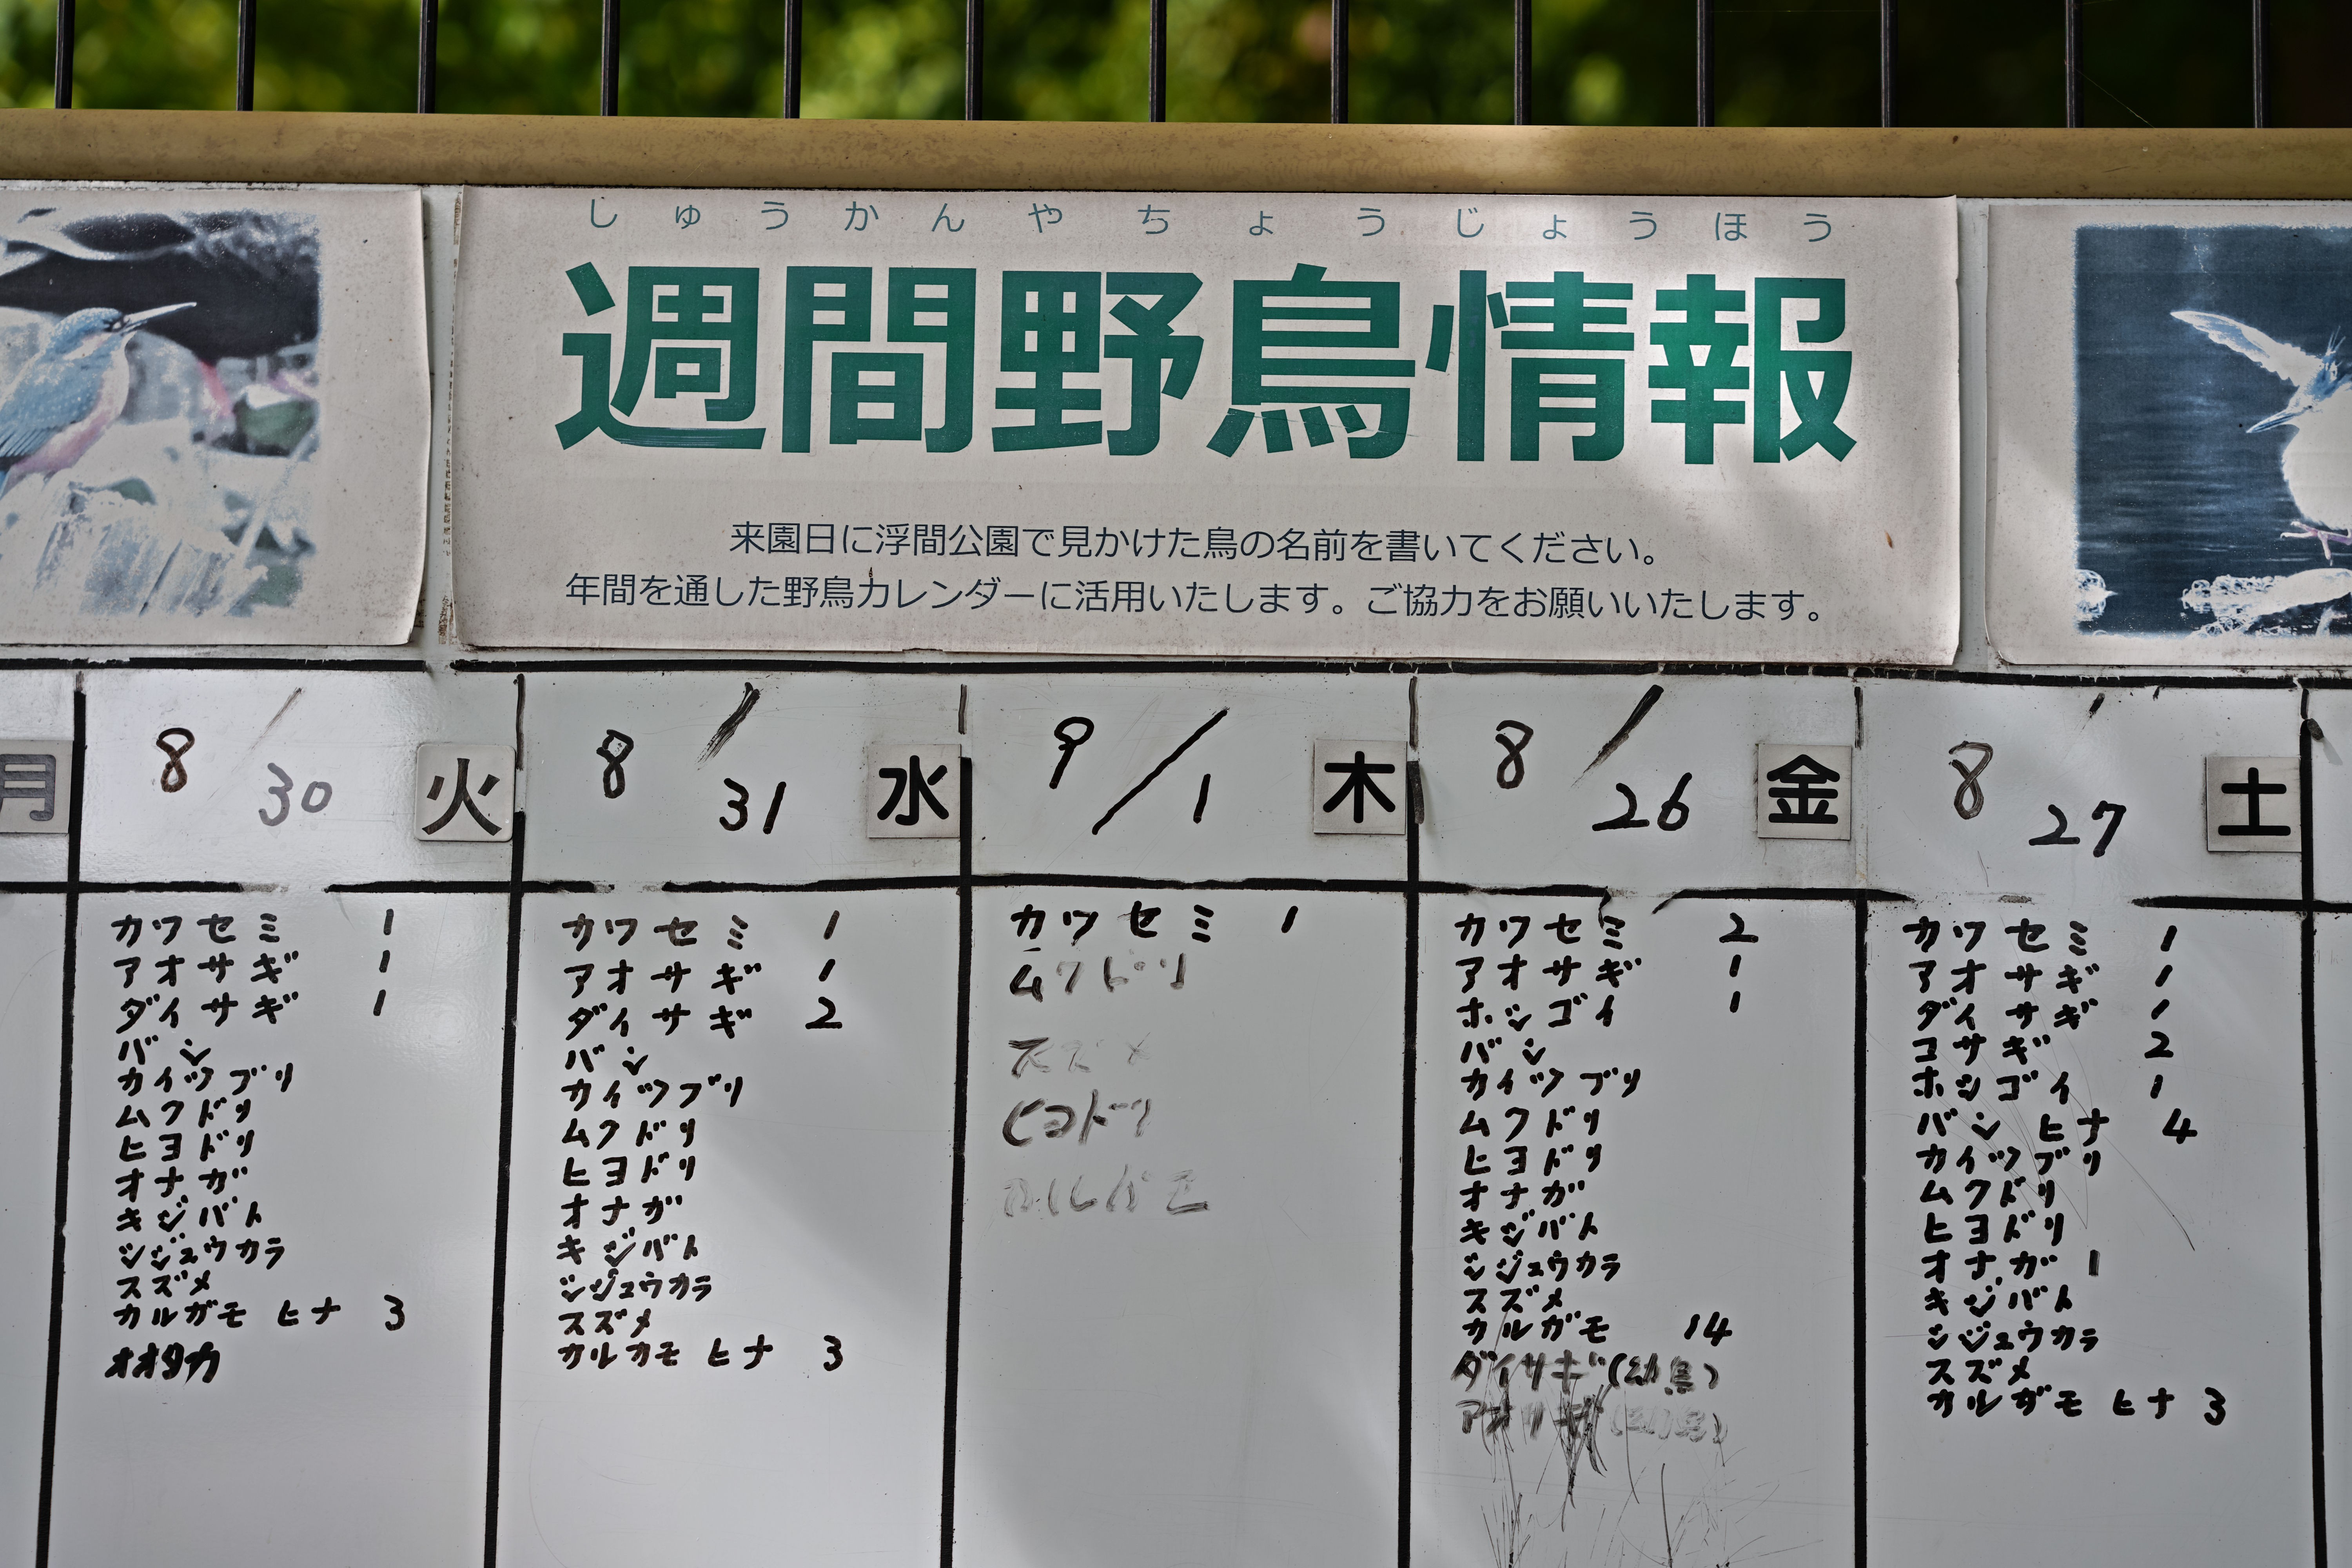 しゅうかんやちょうじょうほう
週間野鳥情報
来園日に浮間公園で見かけた鳥の名前を書いてください。
年間を通した野鳥カレンダーに活用いたします。ご協力をお願いいたします。
月
8/30 火
カワセミ 1
アオサギ 1
ダイサギ 1
バン
カイツブリ
ムクドリ
ヒヨドリ
オナガ
キジバト
シジュウカラ
スズメ
カルガモ ヒナ 3
オオタカ
8/31 水
カワセミ 1
アオサギ 1
ダイサギ 2
バン
カイツブリ
ムクドリ
ヒヨドリ
オナガ
キジバト
シジュウカラ
スズメ
カルカモ ヒナ 3
9/1 木
カワセミ 1
ムクドリ
スズメ
ヒヨドリ
カルガモ
8/26 金
カワセミ 2
アオサギ 1
ホシゴイ 1
バン
カイツブリ
ムクドリ
ヒヨドリ
オナガ
キジバト
シジュウカラ
スズメ
カルガモ 14
ダイサギ(幼鳥)
アオサギ(幼鳥)
8/27 土
カワセミ 1
アオサギ 1
ダイサギ 1
コサギ 2
ホシゴイ 1
バン ヒナ 4
カイツブリ
ムクドリ
ヒヨドリ
オナガ 1
キジバト
シジュウカラ
スズメ
カルガモ ヒナ 3